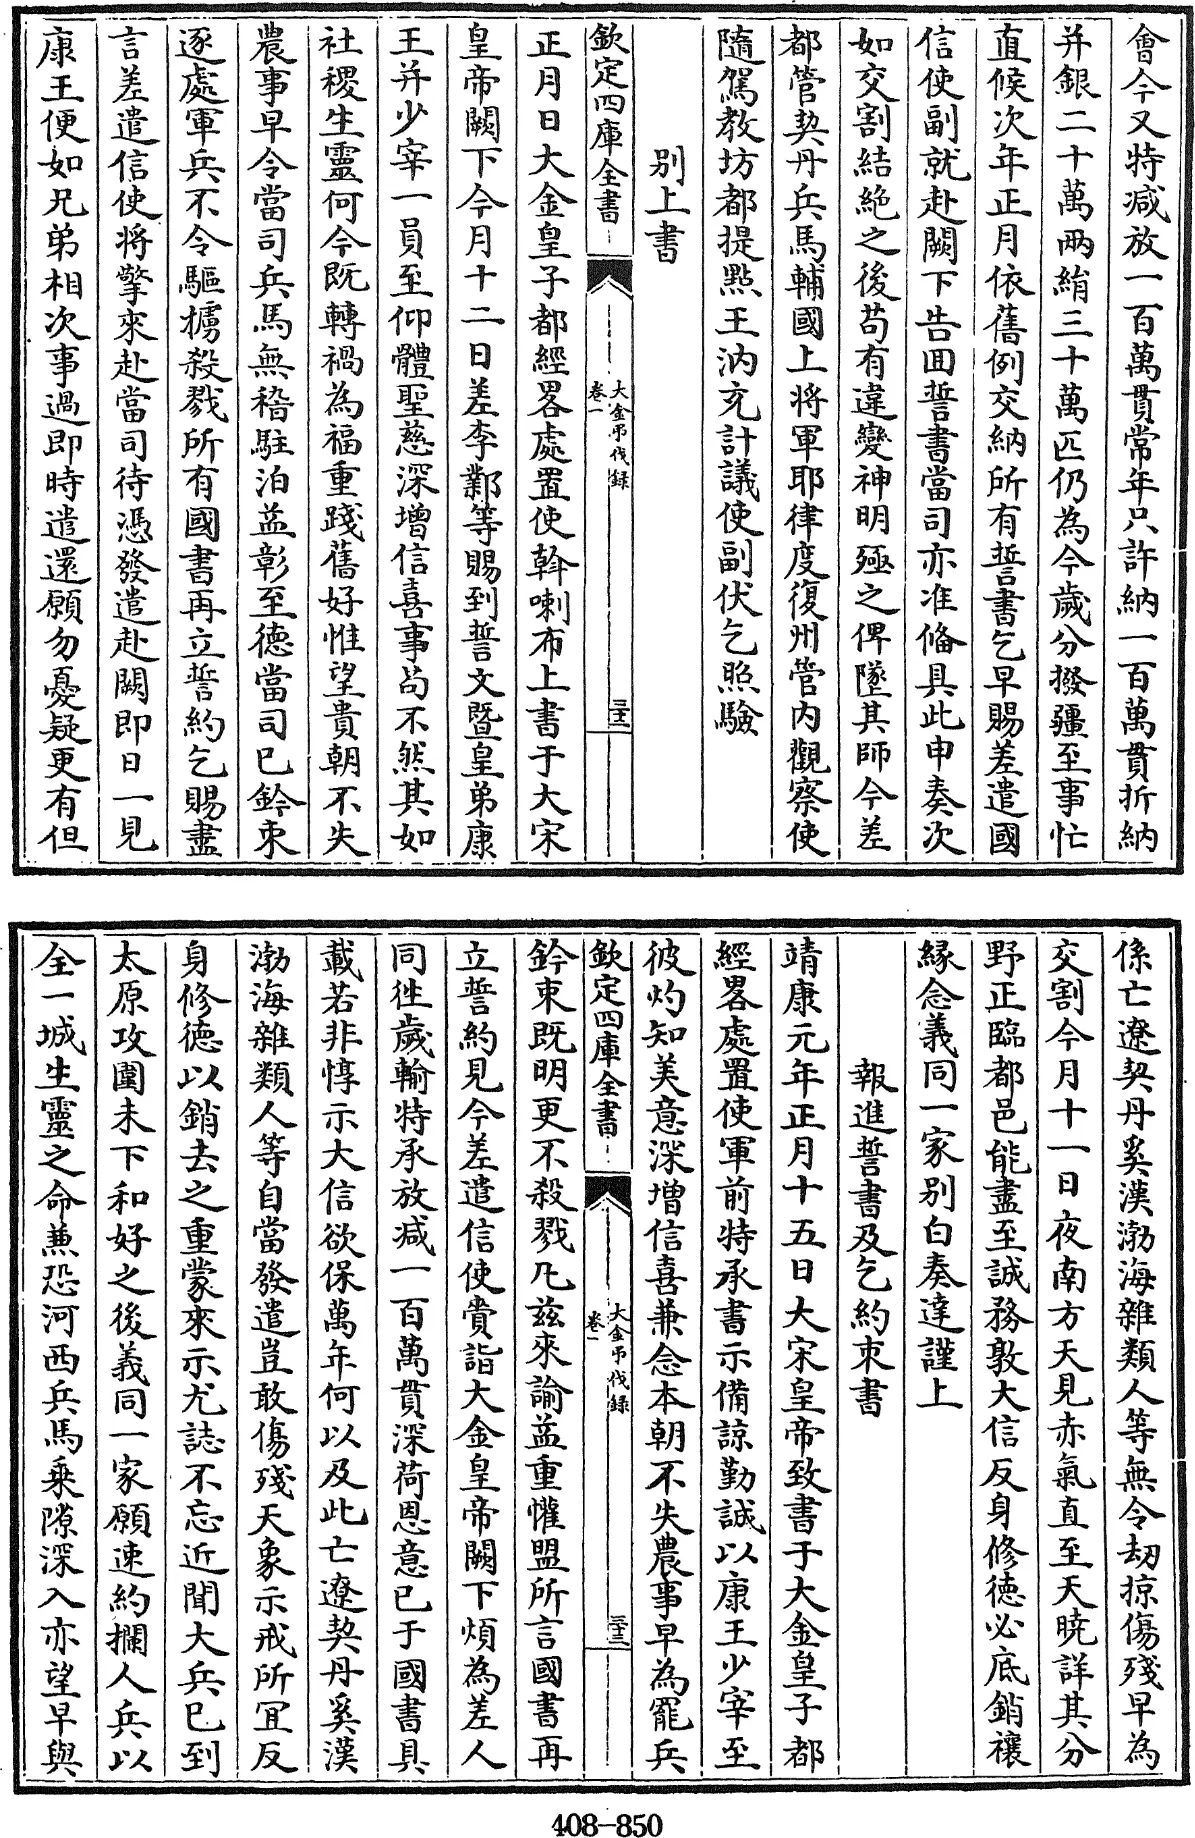 會今又特减放一百萬貫常年只許納一百萬貫折納
并銀二十萬兩絹三十萬匹仍為今歲分撥疆至事忙
直候次年正月依舊例交納所有誓書乞早賜差遣國
信使副就赴闕下告囬誓書當司亦准俻具此申奏次
如交割結絶之後茍有違變神明殛之俾墜其師今差
都管契丹兵馬輔國上將軍耶律度復州管内觀察使
隨駕教坊都提點王汭充計議使副伏乞照驗
別上書
欽定四庫全書
大金弔伐録
卷一
三十二
正月日大金皇子都經畧處置使斡喇布上書于大宋
皇帝闕下今月十二日差李鄴等賜到誓文暨皇弟康
王并少宰一員至仰體聖慈深增信喜事茍不然其如
社稷生靈何今既轉禍為福重踐舊好惟望貴朝不失
農事早令當司兵馬無稽駐泊益彰至德當司已鈐束
逐處軍兵不令驅擄殺戮所有國書再立誓約乞賜盡
言差遣信使將擎來赴當司待憑發遣赴闕即日一見
康王便如兄弟相次事過即時遣還願勿憂疑更有但
係亡遼契丹奚漢渤海雜類人等無令刼掠傷殘早為
交割今月十一日夜南方天見赤氣直至天曉詳其分
野正臨都邑能盡至誠務敦大信反身修德必底銷禳
緣念義同一家別白奏達謹上
報進誓書及乞約束書
靖康元年正月十五日大宋皇帝致書于大金皇子都
經畧處置使軍前特承書示備諒勤誠以康王少宰至
彼灼知美意深增信喜兼念本朝不失農事早為罷兵
欽定四庫全書
大金弔伐録
卷一
三十三
鈐束既明更不殺戮凡兹來諭益重懽盟所言國書再
立誓約見今差遣信使賫詣大金皇帝闕下煩為差人
同徃歲輸特承放减一百萬貫深荷恩意已于國書具
載若非惇示大信欲保萬年何以及此亡遼契丹奚漢
渤海雜類人等自當發遣豈敢傷殘天象示戒所冝反
身修德以銷去之重蒙來示尤誌不忘近聞大兵已到
太原攻圍未下和好之後義同一家願速約攔人兵以
全一城生靈之命兼恐河西兵馬乘隙深入亦望早與
408-850